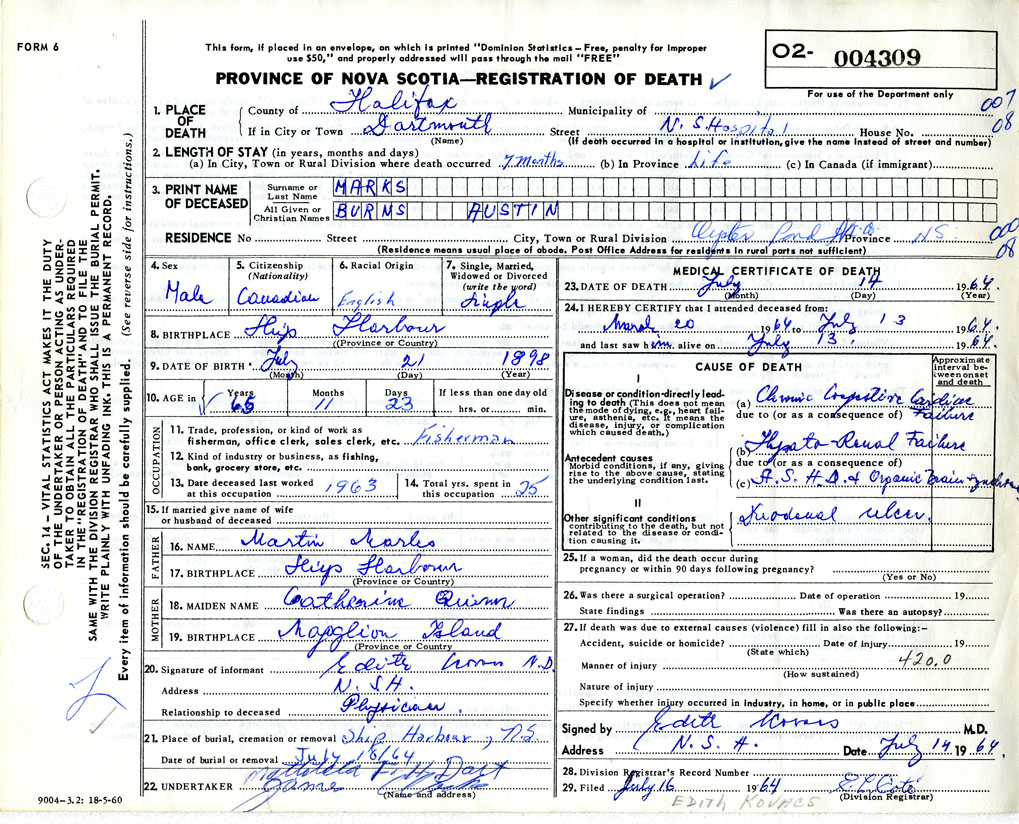 FORM 6
This form, if placed in an envelope, on which is printed "Dominion Statistics – Free, penalty for improper
use $50," and properly addressed will pass through the mail "FREE"
PROVINCE OF NOVA SCOTIA—REGISTRATION OF DEATH ✓
O2- 004309
For use of the Department only
1. PLACE OF DEATH
County of Halifax Municipality of 007
If in City or Town Dartmouth Street N. S Hospital House No. 08
(Name) (If death occurred in a hospital or institution, give the name instead of street and number)
2. LENGTH OF STAY (in years, months and days)
(a) In City, Town or Rural Division where death occurred 7 Months (b) In Province Life (c) In Canada (if immigrant)
3. PRINT NAME OF DECEASED
Surname or Last Name MARKS
All Given or Christian Names BURNS AUSTIN
RESIDENCE No Street City, Town or Rural Division Oyster Pond Province NS
08
(Residence means usual place of abode. Post Office Address for residents in rural parts not sufficient)
4. Sex Male
5. Citizenship (Nationality) Canadian
6. Racial Origin English
7. Single, Married, Widowed or Divorced (write the word) Single
8. BIRTHPLACE Ship Harbour
(Province or Country)
9. DATE OF BIRTH July 21 1898
(Month) (Day) (Year)
10. AGE in Years 65 Months 11 Days 23 If less than one day old hrs. or min.
OCCUPATION
11. Trade, profession, or kind of work as
fisherman, office clerk, sales clerk, etc. Fisherman
12. Kind of industry or business, as fishing,
bank, grocery store, etc.
13. Date deceased last worked
at this occupation 1963
14. Total yrs. spent in
this occupation 25
15. If married give name of wife
or husband of deceased
FATHER
16. NAME Martin Marks
17. BIRTHPLACE Ship Harbour
(Province or Country)
MOTHER
18. MAIDEN NAME Catherine Quinn
19. BIRTHPLACE Island
(Province or Country)
20. Signature of informant Edith Kovacs M.D.
Address N. S H.
Relationship to deceased Physician.
21. Place of burial, cremation or removal Ship Harbour, N S
Date of burial or removal July 18/64
22. UNDERTAKER Dart
James
(Name and address)
9004-3.2: 18-5-60
MEDICAL CERTIFICATE OF DEATH
23. DATE OF DEATH July 14 1964
(Month) (Day) (Year)
24. I HEREBY CERTIFY that I attended deceased from:
March 20 1964 to July 13 1964
and last saw him alive on July 13. 1964
CAUSE OF DEATH
Approximate interval between onset and death
I
Disease or condition directly leading to death (This does not mean the mode of dying, e.g., heart failure, asthenia, etc. It means the disease, injury, or complication which caused death.)
(a) Chronic Congestive Cardiac Failure
due to (or as a consequence of)
Antecedent causes
Morbid conditions, if any, giving rise to the above cause, stating the underlying condition last.
(b) Hepato-Renal Failure
due to (or as a consequence of)
(c) A. S. H. D. & Organic Brain Syndrome
II
Other significant conditions
contributing to the death, but not related to the disease or condition causing it.
Duodenal ulcer.
25. If a woman, did the death occur during
pregnancy or within 90 days following pregnancy?
(Yes or No)
26. Was there a surgical operation? Date of operation 19
State findings Was there an autopsy?
27. If death was due to external causes (violence) fill in also the following:–
Accident, suicide or homicide? Date of injury 19
(State which)
Manner of injury 420.0
(How sustained)
Nature of injury
Specify whether injury occurred in industry, in home, or in public place
Signed by Edith Kovacs M.D.
Address N. S. H. Date July 14 1964
28. Division Registrar's Record Number
29. Filed July 16 1964
(Division Registrar)
EDITH KOVACS
SEC. 14 – VITAL STATISTICS ACT MAKES IT THE DUTY
OF THE UNDERTAKER OR PERSON ACTING AS UNDER-
TAKER TO OBTAIN ALL THE PARTICULARS REQUIRED
IN THE "REGISTRATION OF DEATH" AND TO FILE THE
SAME WITH THE DIVISION REGISTRAR WHO SHALL ISSUE THE BURIAL PERMIT.
WRITE PLAINLY WITH UNFADING INK. THIS IS A PERMANENT RECORD.
Every item of information should be carefully supplied. (See reverse side for instructions.)